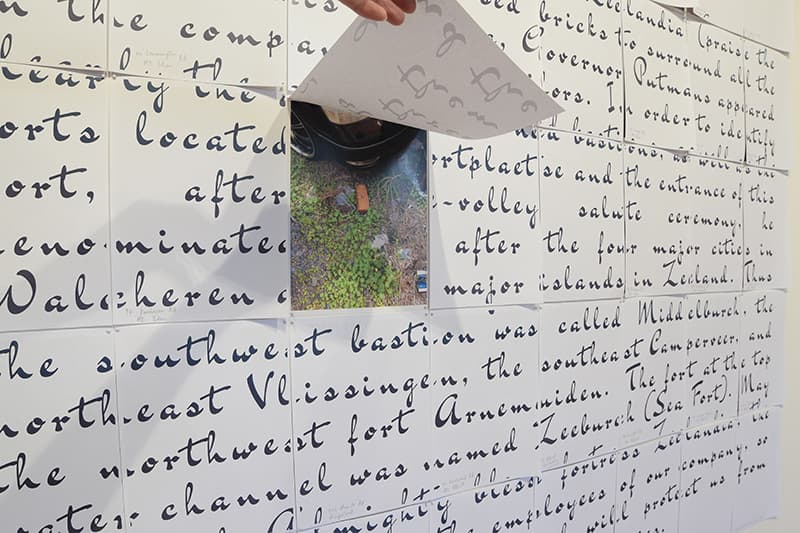 eelandia (praise the
sed bricks to surround all the
Governor Putmans appeared
n the comp ors. In order to identify
early the nd bastions, as well as the
orts located ortplaetse and the entrance of this
ort, after -volley salute ceremony, he
enominated after the four major cities in
Walcheren major islands in Zeeland. Thus
the southwest bastion was called Middelburch, the
northeast Vlissingen, the southeast Camperveer, and
the northwest fort Arnemuiden. The fort at the top
water channel was named Zeeburch (Sea Fort). May
Almighty bless fortress Zeelandia, the
the employees of our company, so
will protect us from